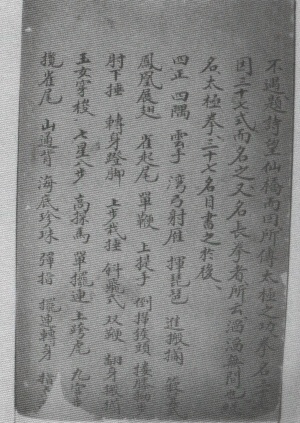 不遇題詩望仙橋而回所傳太極之功拳名三
因三十七式而名之又名長拳者所云滔滔無間也
名太極拳三十七名目書之於後
四正 四隅 雲手 灣弓射雁 揮琵琶 進搬攔
鳳凰展翅 雀起尾 單鞭 上提手 倒攆猴頭 摟膝拗步
肘下捶 轉身蹬脚 上步栽捶 斜飛式 双鞭 翻身搬攔
玉女穿梭 七星八步 高探馬 單擺連 上跨虎 九宮
攬雀尾 山通背 海底珍珠 彈指 擺連轉身 指